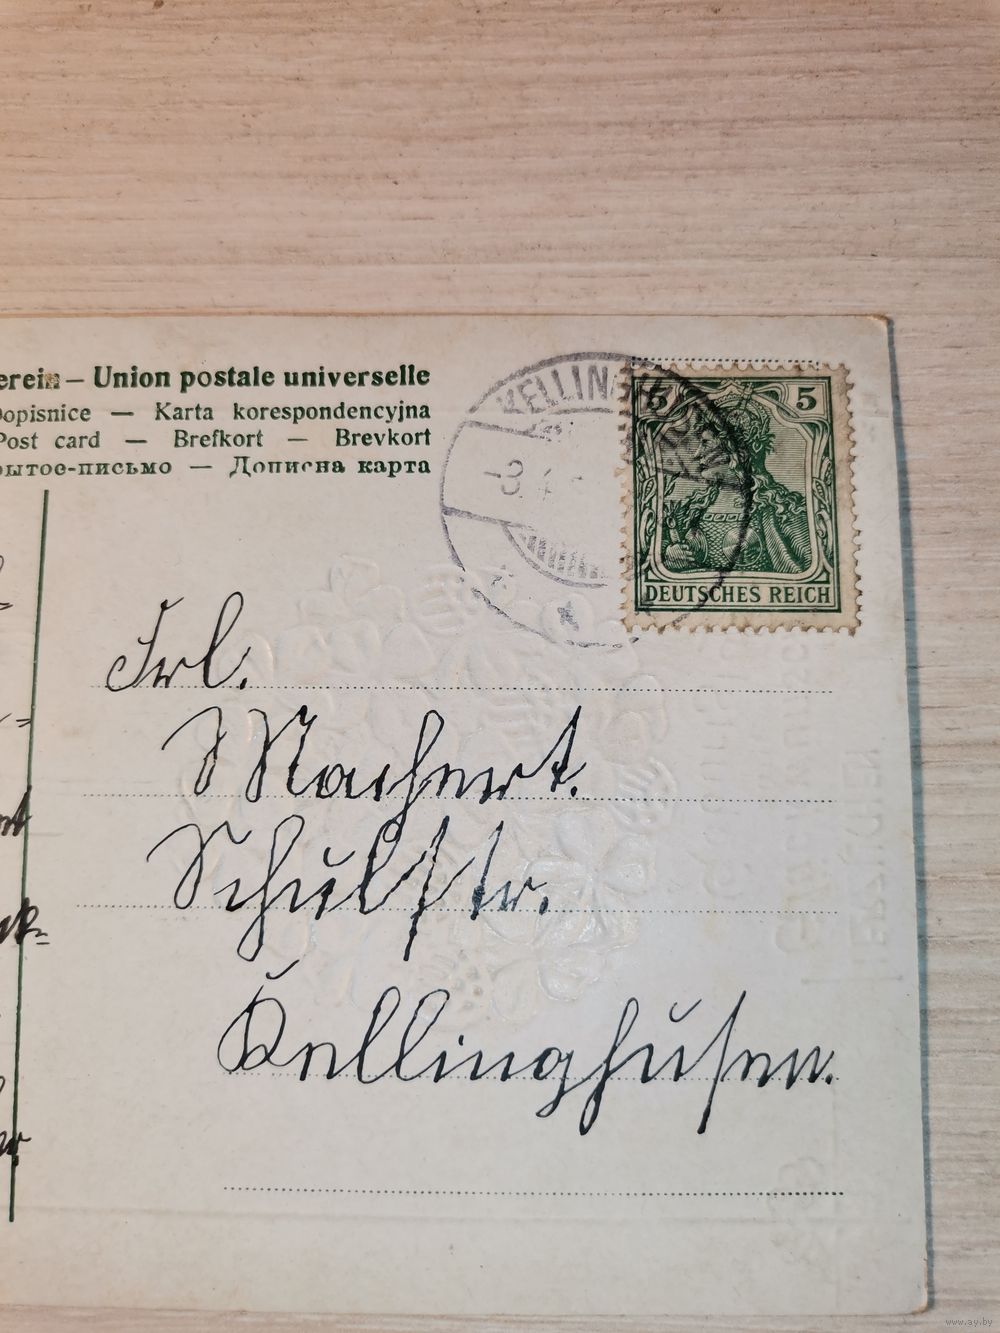 erein – Union postale universelle
Dopisnice — Karta korespondencyjna
Post card — Brefkort — Brevkort
рытое-письмо — Дописна карта
KELLINGHUSEN
5 5
DEUTSCHES REICH
Frl.
Machert.
Schulstr.
Kellinghusen.
www.ay.by